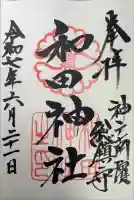 奉拝
神戸開闢
総鎮守
和田神社
令和七年六月二十一日